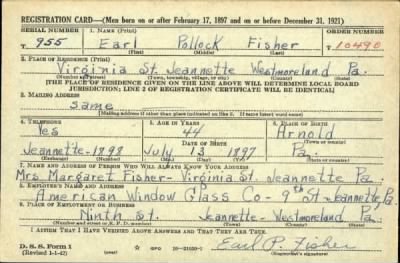 REGISTRATION CARD—(Men born on or after February 17, 1897 and on or before December 31, 1921)
SERIAL NUMBER 1. NAME (Print) ORDER NUMBER
T 955 Earl Pollock Fisher 10490
(First) (Middle) (Last)
2. PLACE OF RESIDENCE (Print)
Virginia St. Jeannette Westmoreland Pa.
(Number and street) (Town, township, village, or city) (County) (State)
[THE PLACE OF RESIDENCE GIVEN ON THE LINE ABOVE WILL DETERMINE LOCAL BOARD
JURISDICTION; LINE 2 OF REGISTRATION CERTIFICATE WILL BE IDENTICAL]
3. MAILING ADDRESS
same
[Mailing address if other than place indicated on line 2. If same insert word same]
4. TELEPHONE 5. AGE IN YEARS 6. PLACE OF BIRTH
Yes 44 Arnold
DATE OF BIRTH (Town or county)
Jeannette-1898 July 13 1897 Pa.
(Exchange) (Number) (Mo.) (Day) (Yr.) (State or country)
7. NAME AND ADDRESS OF PERSON WHO WILL ALWAYS KNOW YOUR ADDRESS
Mrs. Margaret Fisher-Virginia St. Jeannette Pa.
8. EMPLOYER'S NAME AND ADDRESS
American Window Glass Co - 9th St-Jeannette, Pa.
9. PLACE OF EMPLOYMENT OR BUSINESS
Ninth St. Jeannette-Westmoreland Pa.
(Number and street or R. F. D. number) (Town) (County) (State)
I AFFIRM THAT I HAVE VERIFIED ABOVE ANSWERS AND THAT THEY ARE TRUE.
D. S. S. Form 1
(Revised 1-1-42) (over) GPO Earl P. Fisher
(Registrant's signature)